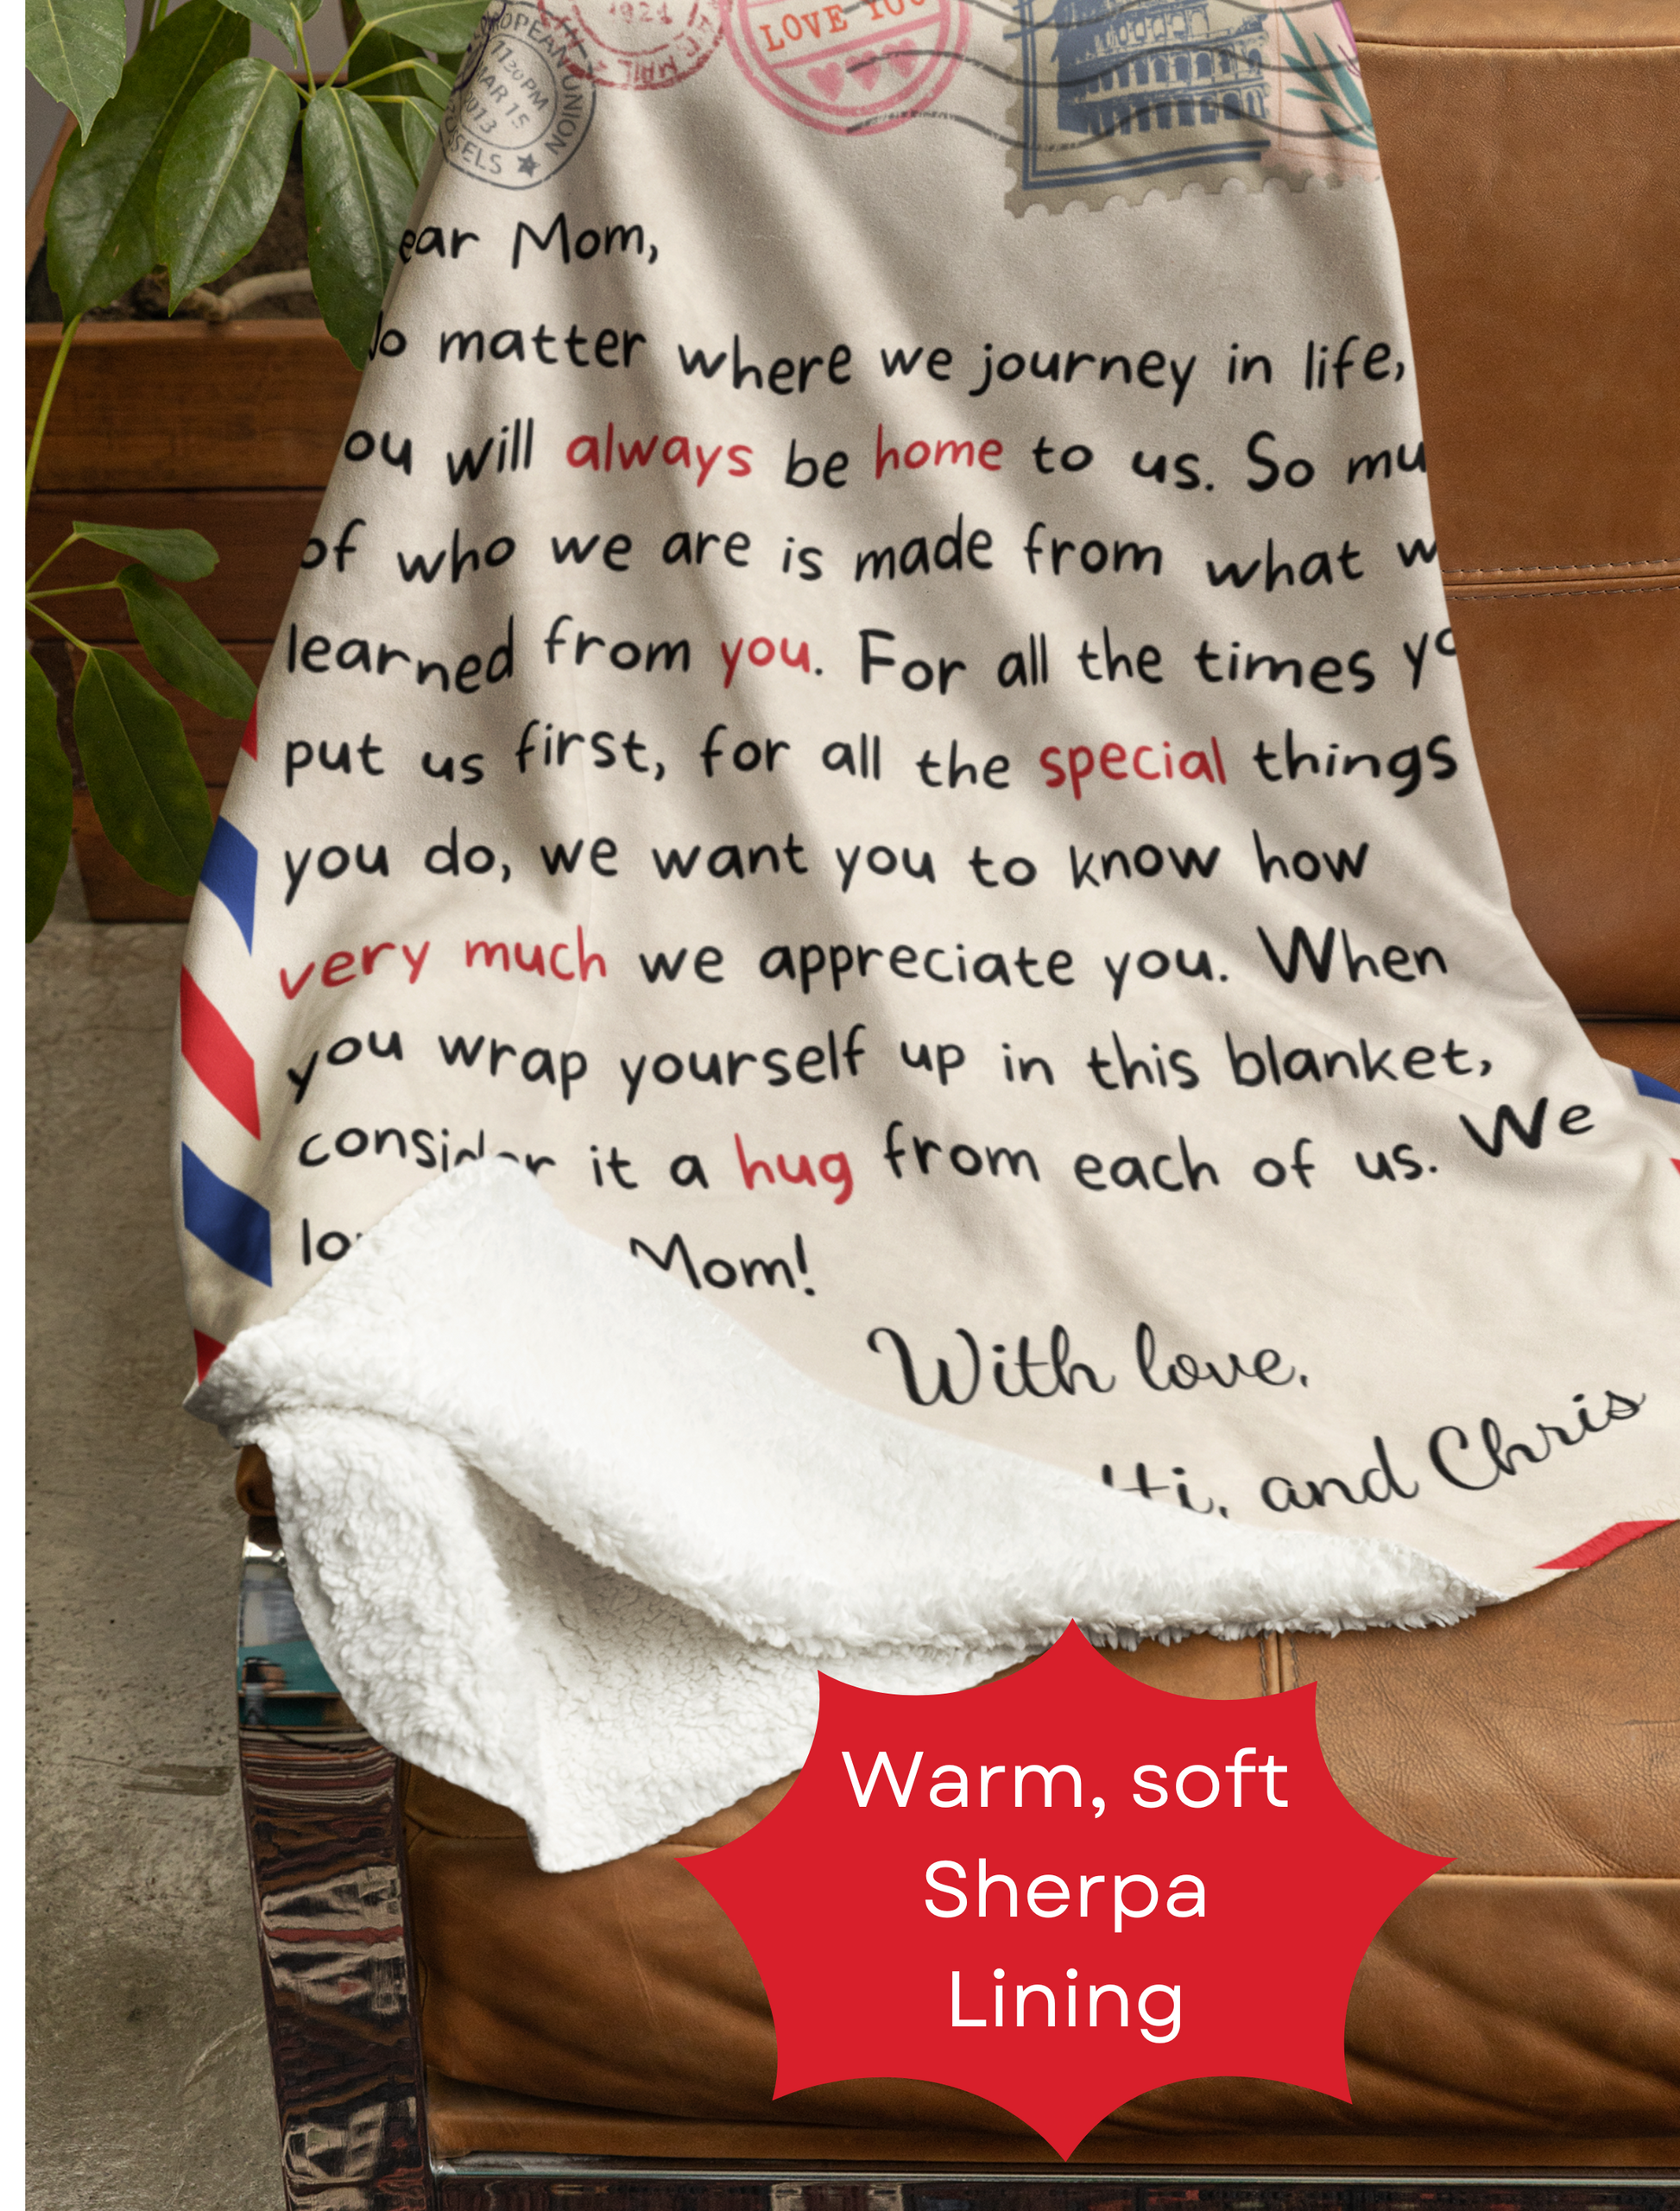 1924
MAIL
LOVE YOU
EUROPEAN UNION
11:20PM
MAR 15
2013
ear Mom,
o matter where we journey in life,
ou will always be home to us. So mu
of who we are is made from what w
learned from you. For all the times yo
put us first, for all the special things
you do, we want you to know how
very much we appreciate you. When
you wrap yourself up in this blanket,
consider it a hug from each of us. We
lo Mom!
With love,
tti, and Chris
Warm, soft
Sherpa
Lining